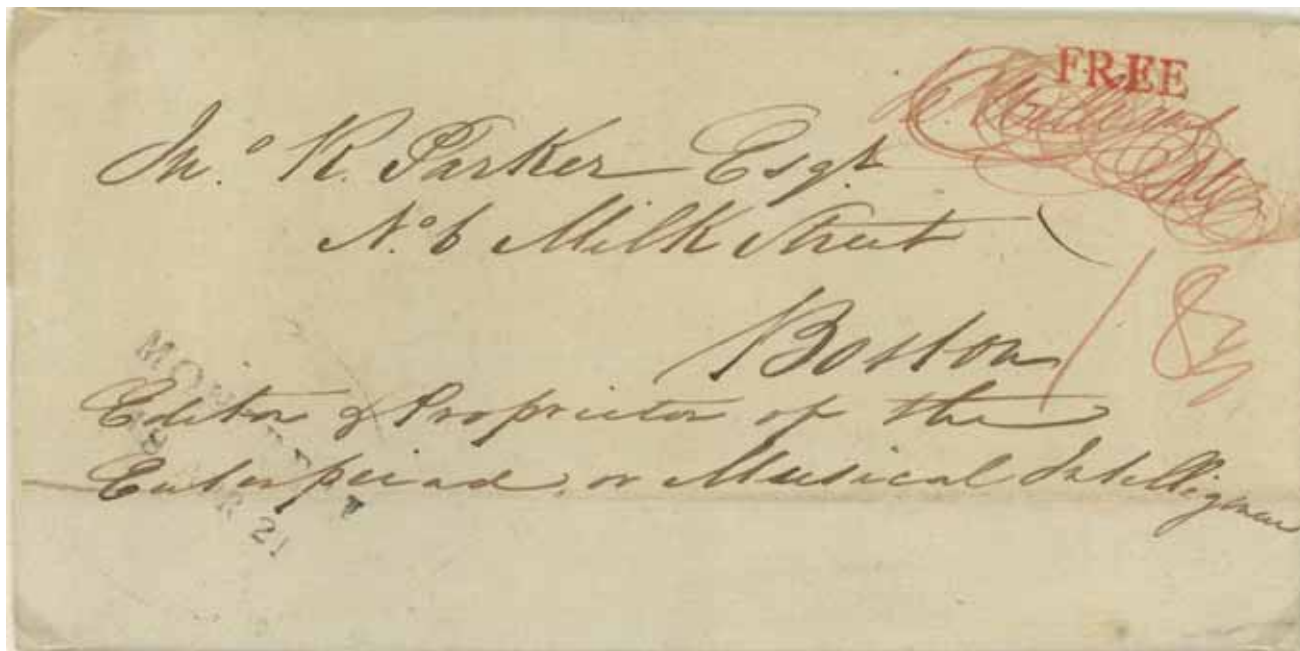 FREE
Jn.º K. Parker Esqr.
Nº. 6 Milk Street
Boston
18 3/4
Editor & Proprietor of the
Euterpeiad, or Musical Intelligencer
21